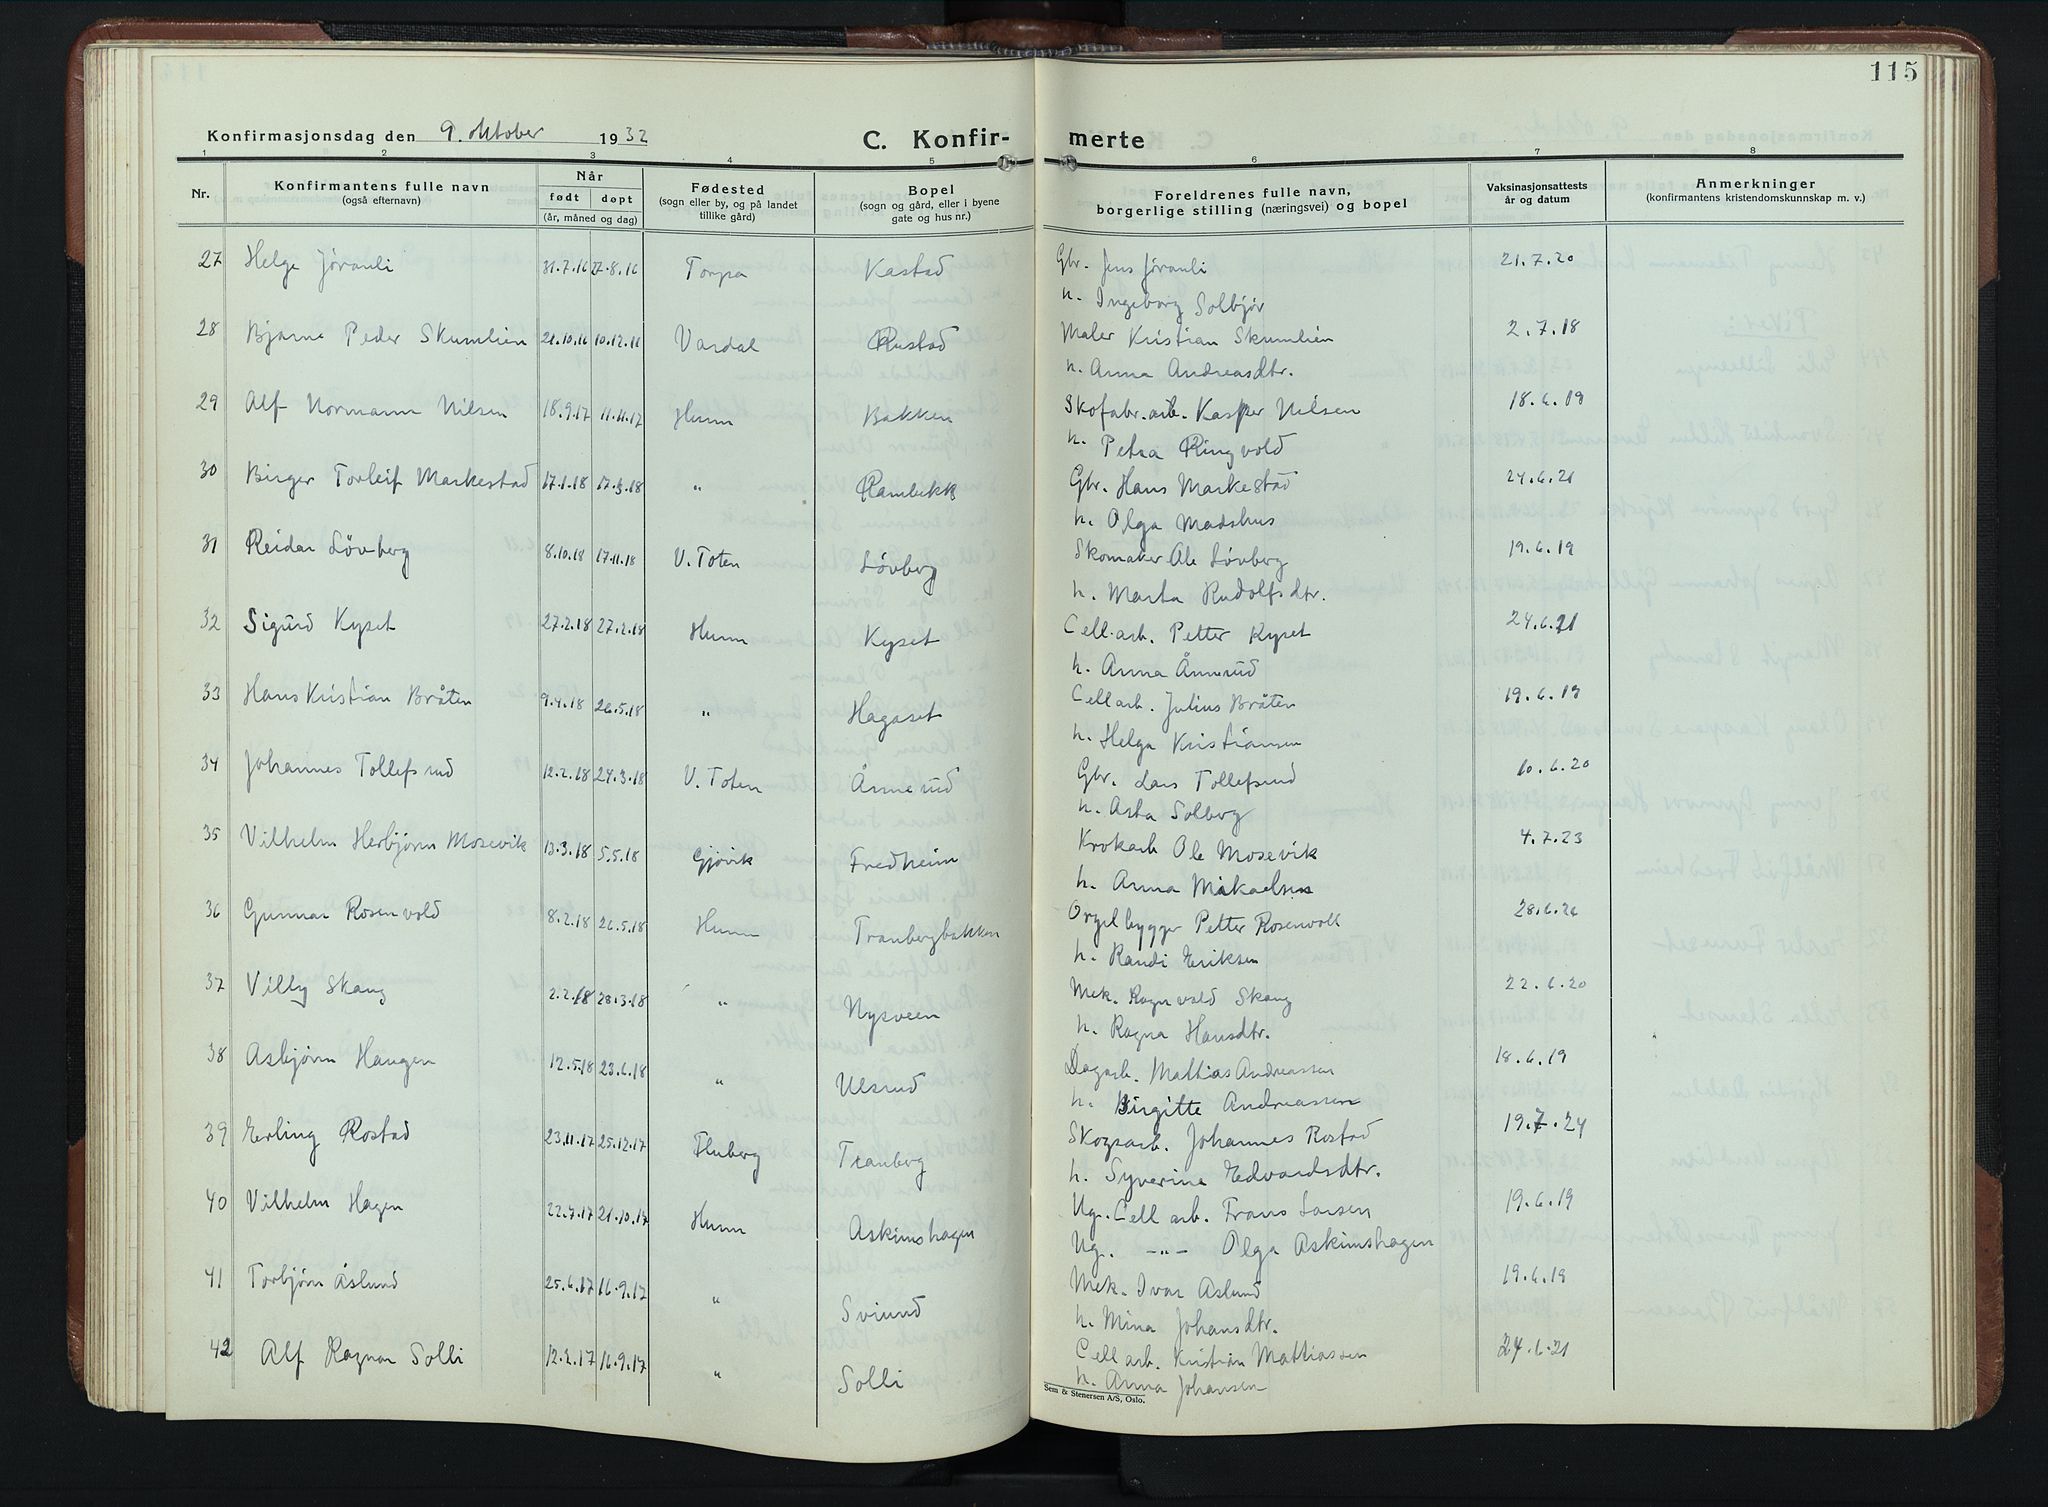 115
Konfirmasjonsdag den 9. oktober 1932
C. Konfir- merte
1 2 3 4 5 6 7 8
Nr.
Konfirmantens fulle navn
(også efternavn)
Når
født døpt
(år, måned og dag)
Fødested
(sogn eller by, og på landet
tillike gård)
Bopel
(sogn og gård, eller i byene
gate og hus nr.)
Foreldrenes fulle navn,
borgerlige stilling (næringsvei) og bopel
Vaksinasjonsattests
år og datum
Anmerkninger
(konfirmantens kristendomskunnskap m. v.)
27 Helge Jøranli 31.7.16 27.8.16 Torpa Kastad Gbr. Jens Jøranli 21.7.20
h. Ingeborg Solbjør
28 Bjarne Peder Skumlien 21.10.16 10.12.16 Vardal Rustad Maler Kristian Skumlien 2.7.18
h. Anna Andreasdtr.
29 Alf Normann Nilsen 18.9.17 11.11.17 Hunn Bakken Skofabr.arb. Kasper Nilsen 18.6.19
h. Petra Ringvold
30 Birger Torleif Markestad 17.1.18 17.3.18 " Rambekk Gbr. Hans Markestad 24.6.21
h. Olga Madshus
31 Reidar Løvberg 8.10.18 17.11.18 V. Toten Løvberg Skomaker Ole Løvberg 19.6.19
h. Marta Rudolfsdtr.
32 Sigurd Kyset 27.2.18 27.2.18 Hunn Kyset Cell.arb. Petter Kyset 24.6.21
h. Anna Ånnerud
33 Hans Kristian Bråten 9.4.18 26.5.18 " Hagaset Cellarb. Julius Bråten 19.6.19
h. Helga Kristiansen
34 Johannes Tollefsrud 12.2.18 24.3.18 V. Toten Ånnerud Gbr. Lars Tollefsrud 10.6.20
h. Asta Solberg
35 Vilhelm Herbjørn Mosevik 13.3.18 5.5.18 Gjøvik Fredheim Krokarb Ole Mosevik 4.7.23
h. Anna Mikaelsen
36 Gunnar Rosenvold 8.2.18 26.5.18 Hunn Tranbergbakken Orgelbygger Petter Rosenvold 28.6.26
h. Randi Eriksen
37 Villy Skaug 2.2.18 28.3.18 " Nysveen Mek. Ragnvald Skaug 22.6.20
h. Ragna Hansdtr.
38 Asbjørn Haugen 12.5.18 23.6.18 " Ulsrud Dagarb. Mathias Andreassen 18.6.19
h. Birgitte Andreassen
39 Erling Rostad 23.11.17 25.12.17 Fluberg Tranberg Skogsarb. Johannes Rostad 19.7.24
h. Syverine Edvardsdtr.
40 Vilhelm Hagen 22.7.17 21.10.17 Hunn Askimshagen Ug. Cell arb. Frans Larsen 19.6.19
Ug. -"- Olga Askimshagen
41 Torbjørn Åslund 25.6.17 16.9.17 " Sviund Mek. Ivar Åslund 19.6.19
h. Mina Johansdtr.
42 Alf Ragnar Solli 12.2.17 16.9.17 " Solli Cellarb. Kristian Mattiassen 24.6.21
h. Anna Johansen
Sem & Stenersen A/S, Oslo.